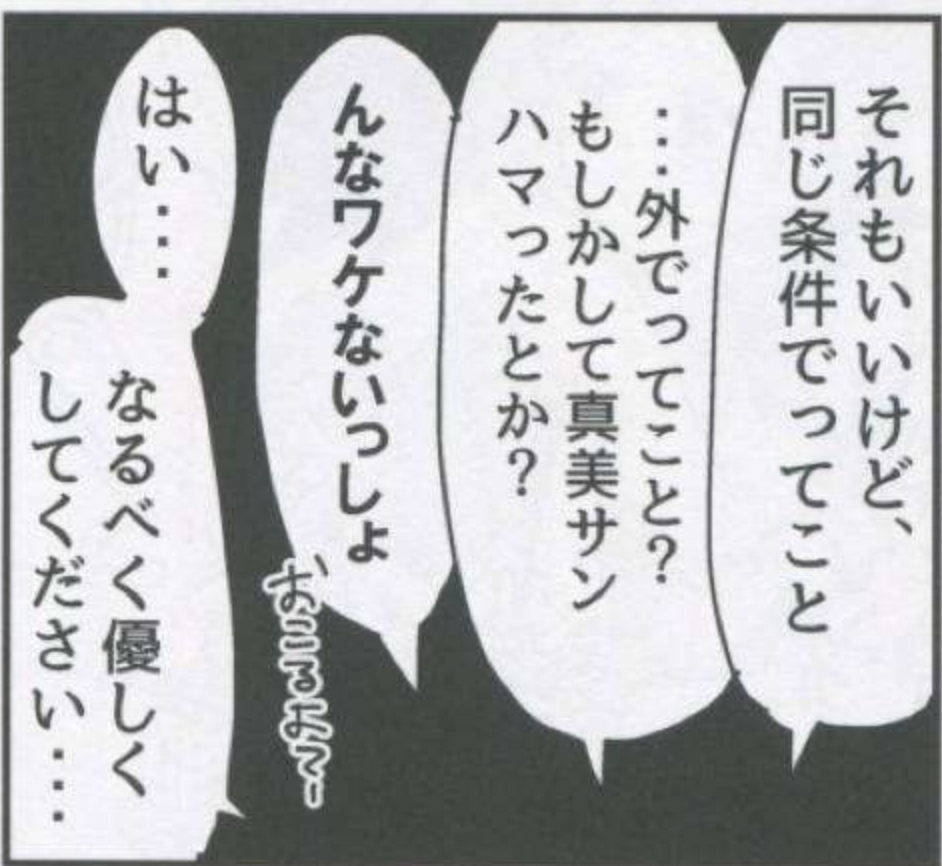 それもいいけど、
同じ条件でってこと
・・・外でってこと？
もしかして真美サン
ハマったとか？
んなワケないっしょ
おこるよマー
はい・・・
なるべく優しく
してください・・・